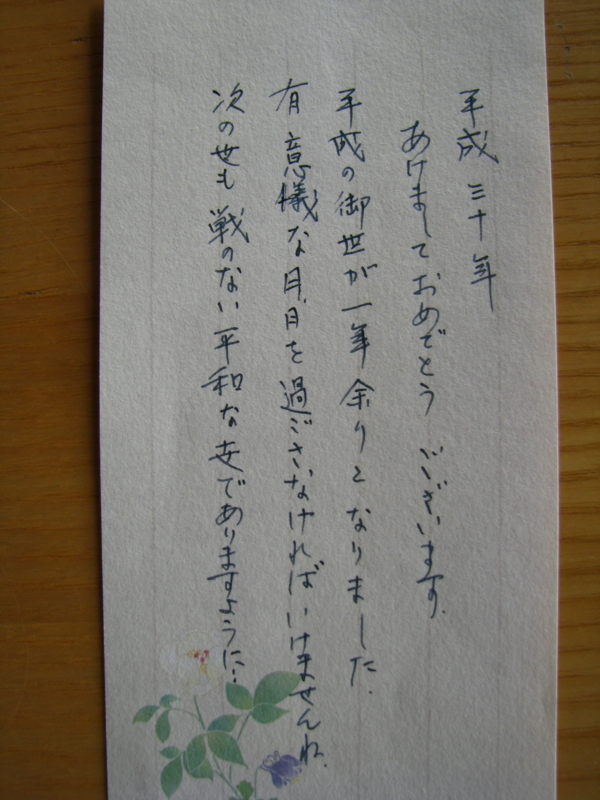 平成三十年
あけましておめでとうございます.
平成の御世が一年余りとなりました.
有意儀な月日を過ごさなければいけませんね.
次の世も戦のない平和な世でありますように.